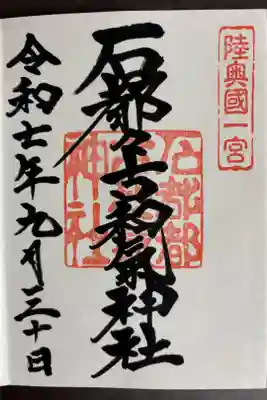 陸奥國一宮
石都々古和氣神社
石都都
神社
令和七年九月三十日